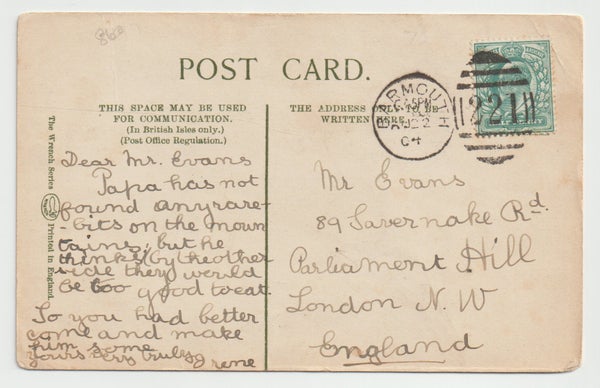 860
POST CARD.
THIS SPACE MAY BE USED
FOR COMMUNICATION.
(In British Isles only.)
(Post Office Regulation.)
THE ADDRESS ONLY TO BE
WRITTEN HERE.
BARMOUTH
5PM
22
04
221
The Wrench Series
Printed in England.
Dear Mr. Evans
Papa has not
found any rare-
-bits on the moun
tains, but he
thinks (by the other
side they would
be too good to eat.
So you had better
come and make
him some
yours very truly Irene
Mr Evans
89 Savernake Rd.
Parliament Hill
London N. W
England